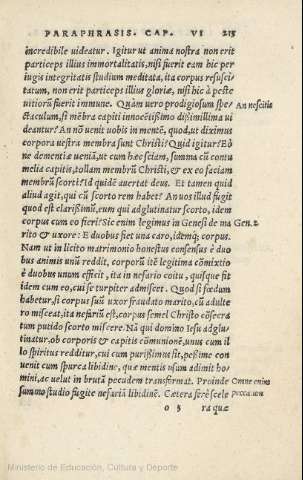 PARAPHRASIS. CAP. VI 215
incredibile uideatur. Igitur ut anima nostra non erit
particeps illius immortalitatis, nisi fuerit eam hic per
iugis integritatis studium meditata, ita corpus resusci-
tatum, non erit particeps illius gloriæ, nisi hic à peste
uitiorũ fuerit immune. Quàm uero prodigiosum spe An nescitis
ctaculum, si mẽbra capiti innocẽtißimo dißimillima ui
deantur? An nõ uenit uobis in mentẽ, quod, ut diximus
corpora uestra membra sunt Christi? Quid igitur? Eò
ne dementiæ ueniã, ut cum hæc sciam, summa cũ contu
melia capitis, tollam membrũ Christi, & ex eo faciam
membrũ scorti? Id quidẽ auertat deus. Et tamen quid
aliud agit, qui cũ scorto rem habet? An uos illud fugit
quod est clarißimũ, eum qui adglutinatur scorto, idem
corpus cum eo fieri? Sic enim legimus in Genesi de ma Gen. 2.
rito & uxore: E duobus fiet una caro, idemq; corpus.
Nam ut in licito matrimonio honestus consensus è duo
bus animis unũ reddit, corporũ itẽ legitima cõmixtio
è duobus unum efficit, ita in nefario coitu, quisque fit
idem cum eo, cui se turpiter admiscet. Quod si fœdum
habetur, si corpus suũ uxor fraudato marito, cũ adulte
ro misceat, ita nefariũ est, corpus semel Christo cõsecra
tum putido scorto miscere. Nã qui domino Iesu adglu-
tinatur, ob corporis & capitis cõmunionẽ, unus cum il
lo spiritus redditur, cui cum purißimus sit, peßime con
uenit cum spurca libidine, quæ mentis usum adimit ho-
mini, ac uelut in brutã pecudem transformat. Proinde Omne enim
summo studio fugite nefariã libidinẽ. Cætera ferè scele peccatum
o 3 ra quæ
Ministerio de Educación, Cultura y Deporte